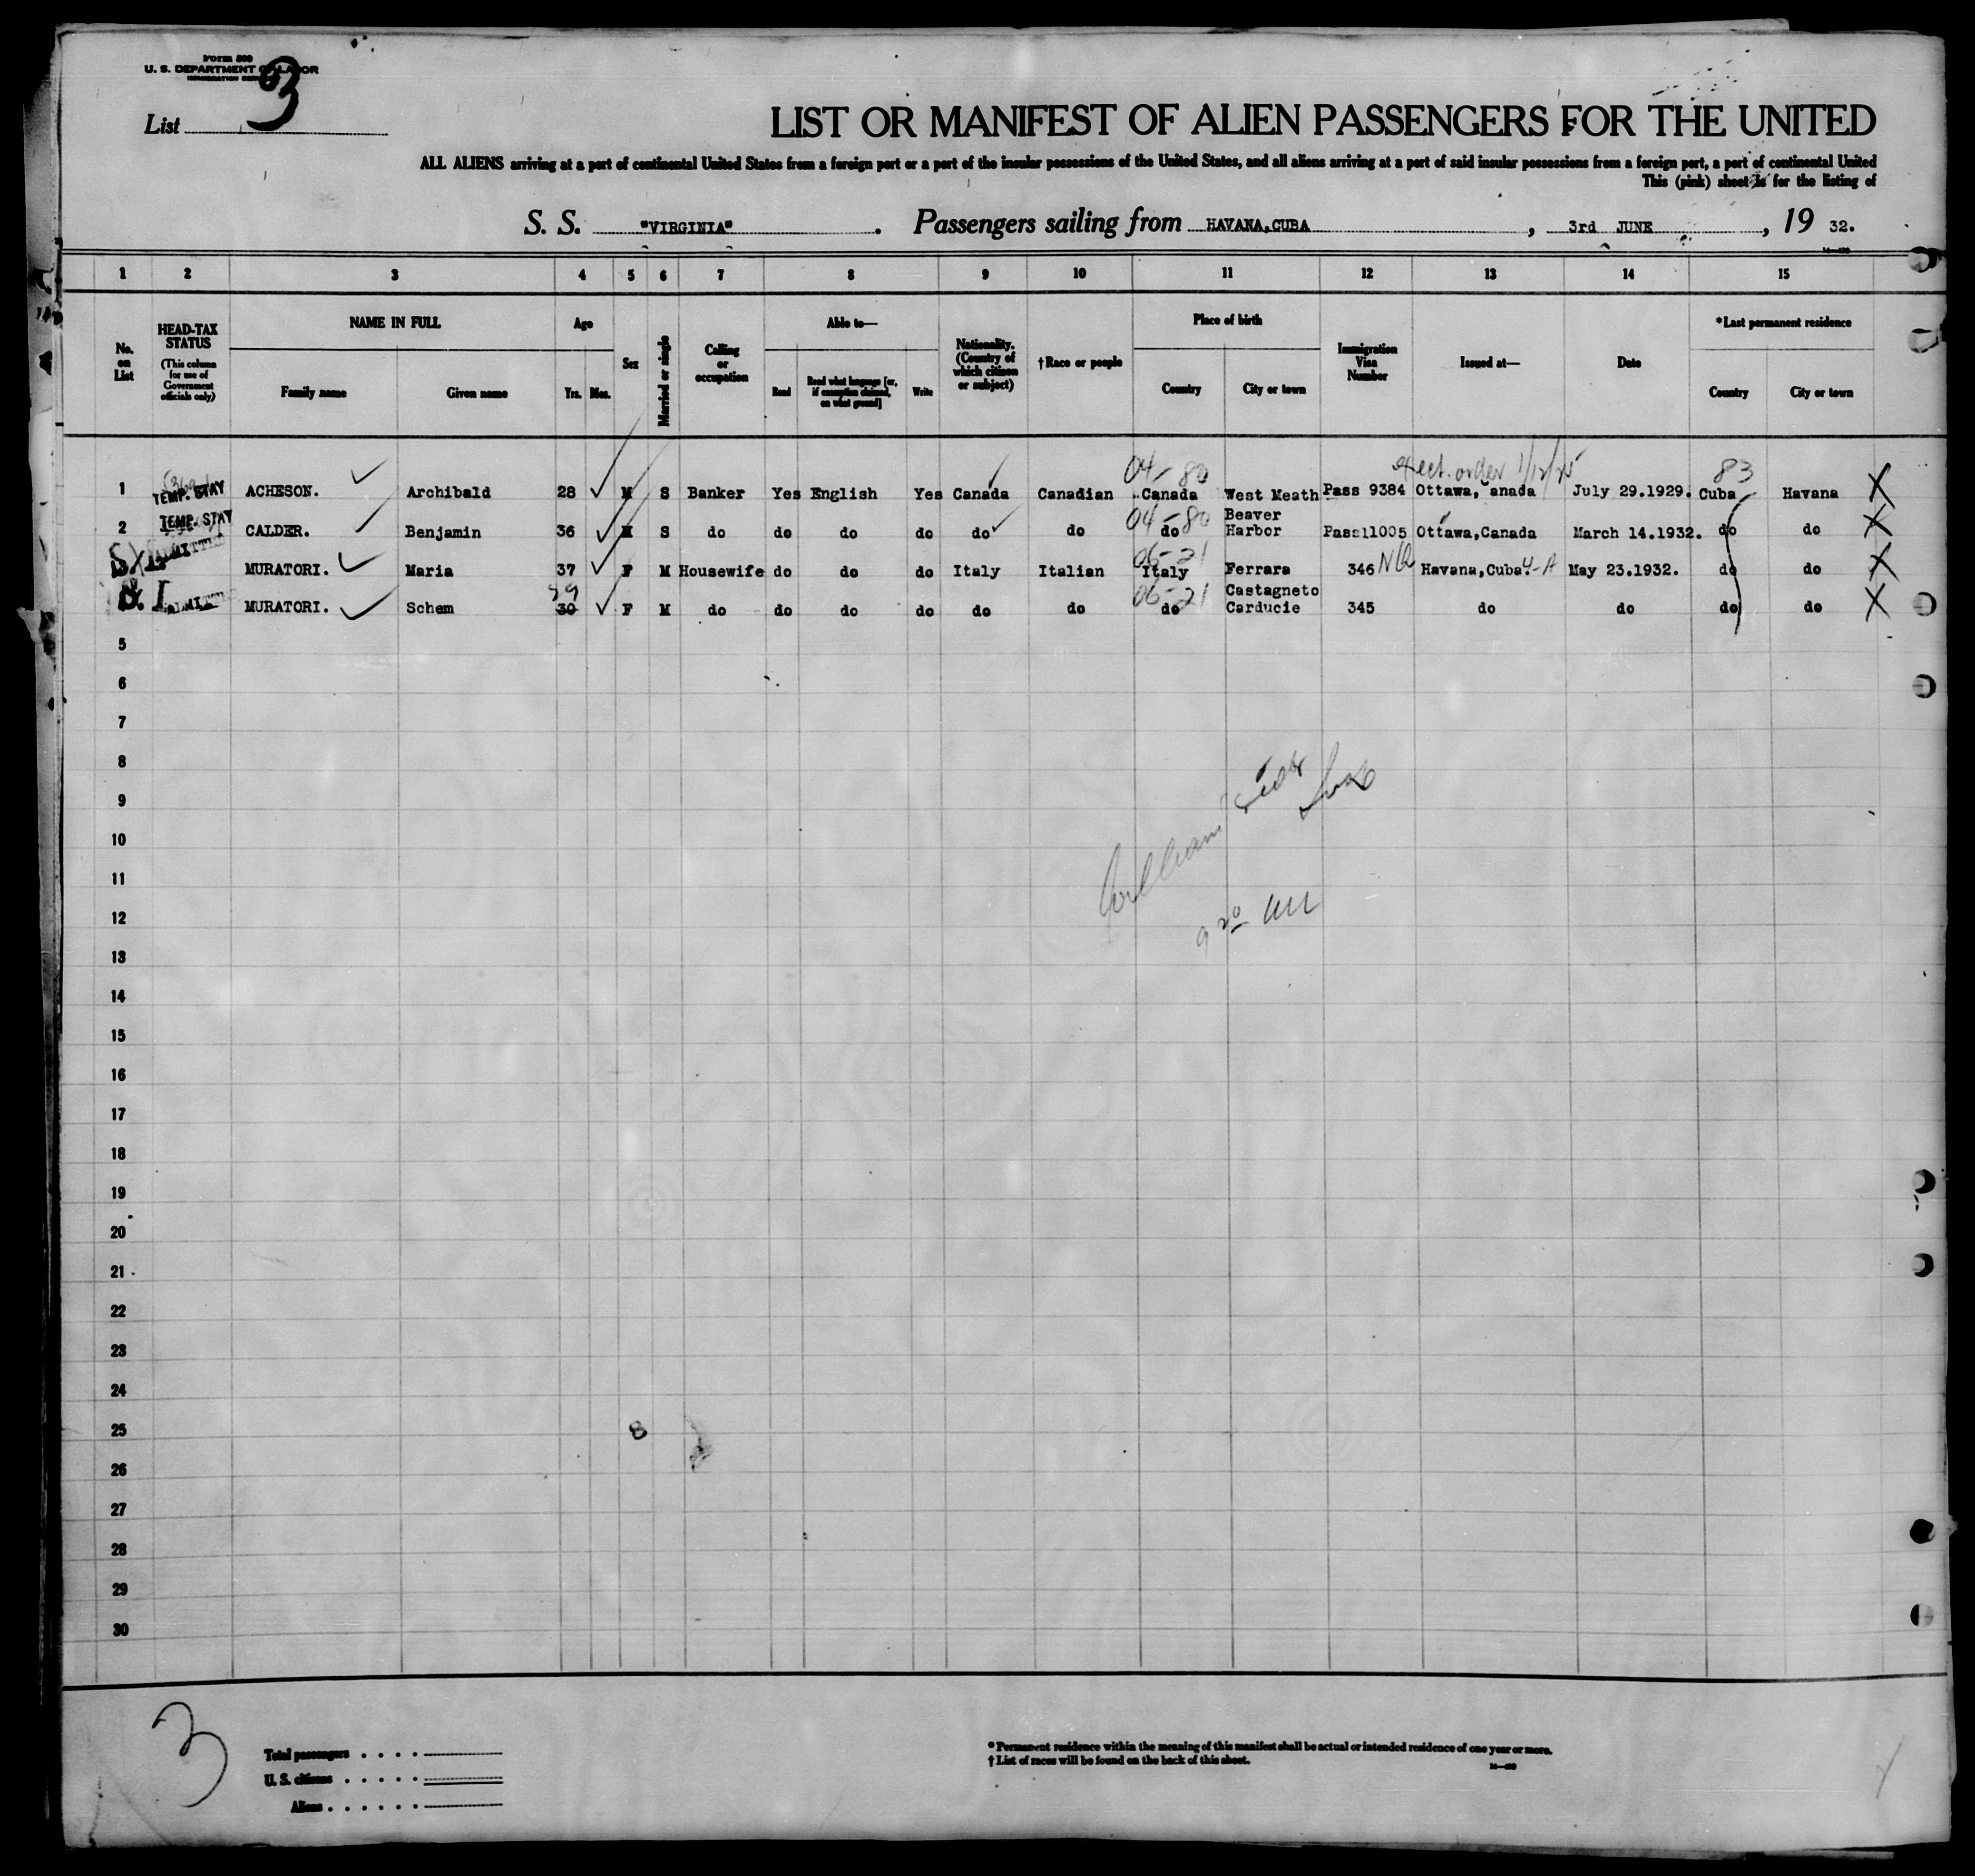 Form 500
U. S. DEPARTMENT OF LABOR
IMMIGRATION SERVICE
List 3
LIST OR MANIFEST OF ALIEN PASSENGERS FOR THE UNITED
ALL ALIENS arriving at a port of continental United States from a foreign port or a port of the insular possessions of the United States, and all aliens arriving at a port of said insular possessions from a foreign port, a port of continental United
This (pink) sheet is for the listing of
S. S. "VIRGINIA". Passengers sailing from HAVANA,CUBA, 3rd JUNE, 19 32.
1 2 3 4 5 6 7 8 9 10 11 12 13 14 15
No. on List
HEAD-TAX STATUS
(This column for use of Government officials only)
NAME IN FULL
Family name Given name
Age
Yrs. Mos.
Sex
Married or single
Calling or occupation
Able to—
Read Read what language [or, if exemption claimed, on what ground] Write
Nationality. (Country of which citizen or subject)
†Race or people
Place of birth
Country City or town
Immigration Visa Number
Issued at—
Date
*Last permanent residence
Country City or town
04-80 order 1/12/25 83
1 TEMP. STAY ACHESON. Archibald 28 M S Banker Yes English Yes Canada Canadian Canada West Meath Pass 9384 Ottawa,Canada July 29.1929. Cuba Havana X
2 TEMP. STAY CALDER. Benjamin 36 M S do do do do do do 04-80 do Beaver Harbor Pass11005 Ottawa,Canada March 14.1932. do do X
ADMITTED MURATORI. Maria 37 F M Housewife do do do Italy Italian 06-21 Italy Ferrara 346 NQ Havana,Cuba. 4-A May 23.1932. do do X
S. I. ADMITTED MURATORI. Schem 30 F M do do do do do do 06-21 do Castagneto Carducie 345 do do do do X
5
6
7
8
9
10
11
12
13
14
15
16
17
18
19
20
21
22
23
24
25 8
26
27
28
29
30
William
9 20 AM
3
Total passengers
U. S. citizens
Aliens
* Permanent residence within the meaning of this manifest shall be actual or intended residence of one year or more.
† List of races will be found on the back of this sheet.